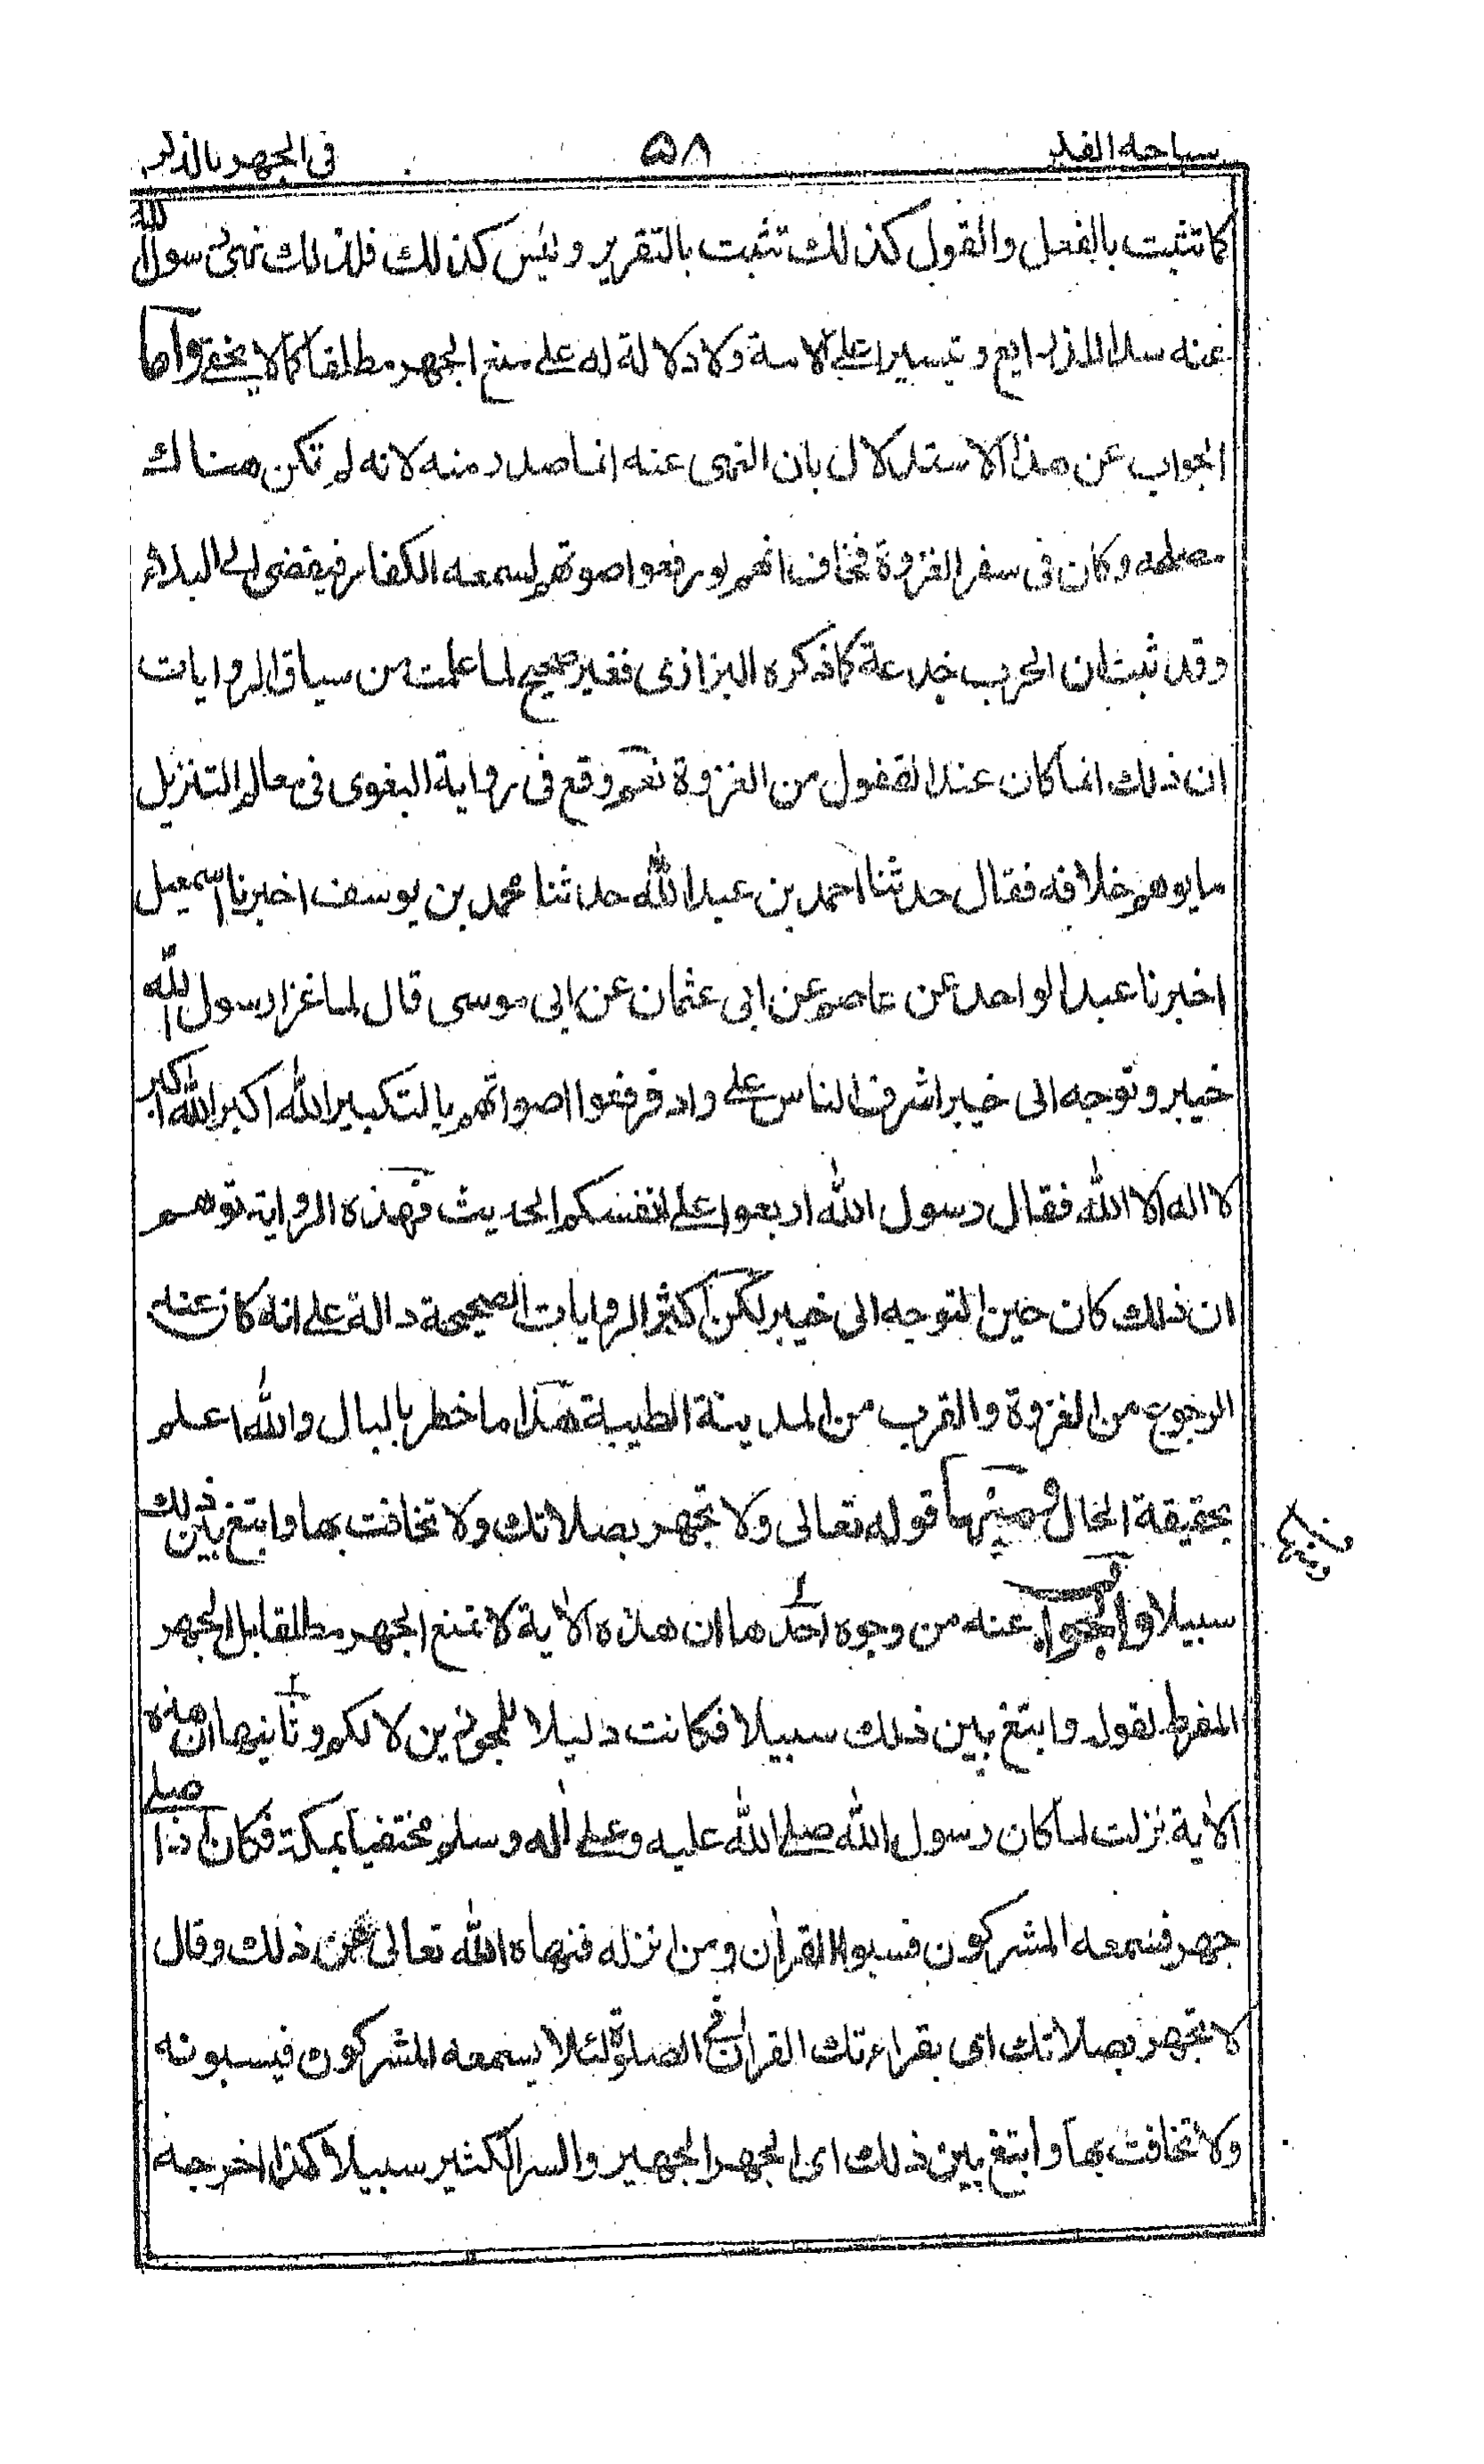 سباحة الفكر ٥٨ في الجهر بالذكر
كما تثبت بالفعل والقول كذلك تثبت بالتقرير وليس كذلك فلذلك نهى رسول الله
عنه سدا للذرايع وتيسيرا على الامة ولا دلالة له على منع الجهر مطلقا كما لا يخفى واما
الجواب عن هذا الاستدلال بان النهى عنه انما صدر منه لانه لم تكن هناك
مصلحة وكان فى سفر الغزوة فخاف انهم لو رفعوا صوتهم لسمعه الكفار فيفضى الى البلاء
وقد ثبت ان الحرب خدعة كما ذكره البزازى فغير صحيح لما علمت من سياق الروايات
ان ذلك انما كان عند القفول من الغزوة نعم وقع فى رواية البغوى فى معالم التنزيل
ما يوهم خلافه فقال حدثنا احمد بن عبد الله حدثنا محمد بن يوسف اخبرنا اسمعيل
اخبرنا عبد الواحد عن عاصم عن ابى عثمان عن ابى موسى قال لما غزا رسول الله
خيبر وتوجه الى خيبر اشرف الناس على واد فرفعوا اصواتهم بالتكبير الله اكبر الله اكبر
لا اله الا الله فقال رسول الله اربعوا على انفسكم الحديث فهذه الرواية توهم
ان ذلك كان حين التوجه الى خيبر لكن اكثر الروايات الصحيحة دالة على انه كان عند
الرجوع من الغزوة والقرب من المدينة الطيبة هذا ما خطر بالبال والله اعلم
بحقيقة الحال ومنها قوله تعالى ولا تجهر بصلاتك ولا تخافت بها وابتغ بين ذلك
ومنها
سبيلا والجواب عنه من وجوه احدها ان هذه الآية لا تمنع الجهر مطلقا بل الجهر
المفرط لقوله وابتغ بين ذلك سبيلا فكانت دليلا للمجوزين لا لكم وثانيها ان هذه
الآية نزلت لما كان رسول الله صلى الله عليه وعلى اله وسلم مختفيا بمكة فكان اذا صلى
جهر فسمعه المشركون فسبوا القرآن ومن انزله فنهاه الله تعالى عن ذلك وقال
لا تجهر بصلاتك اى بقراءتك القرآن فى الصلوة لئلا يسمعه المشركون فيسبونه
ولا تخافت بها وابتغ بين ذلك اى الجهر الجهير والسر الكثير سبيلا هكذا اخرجه